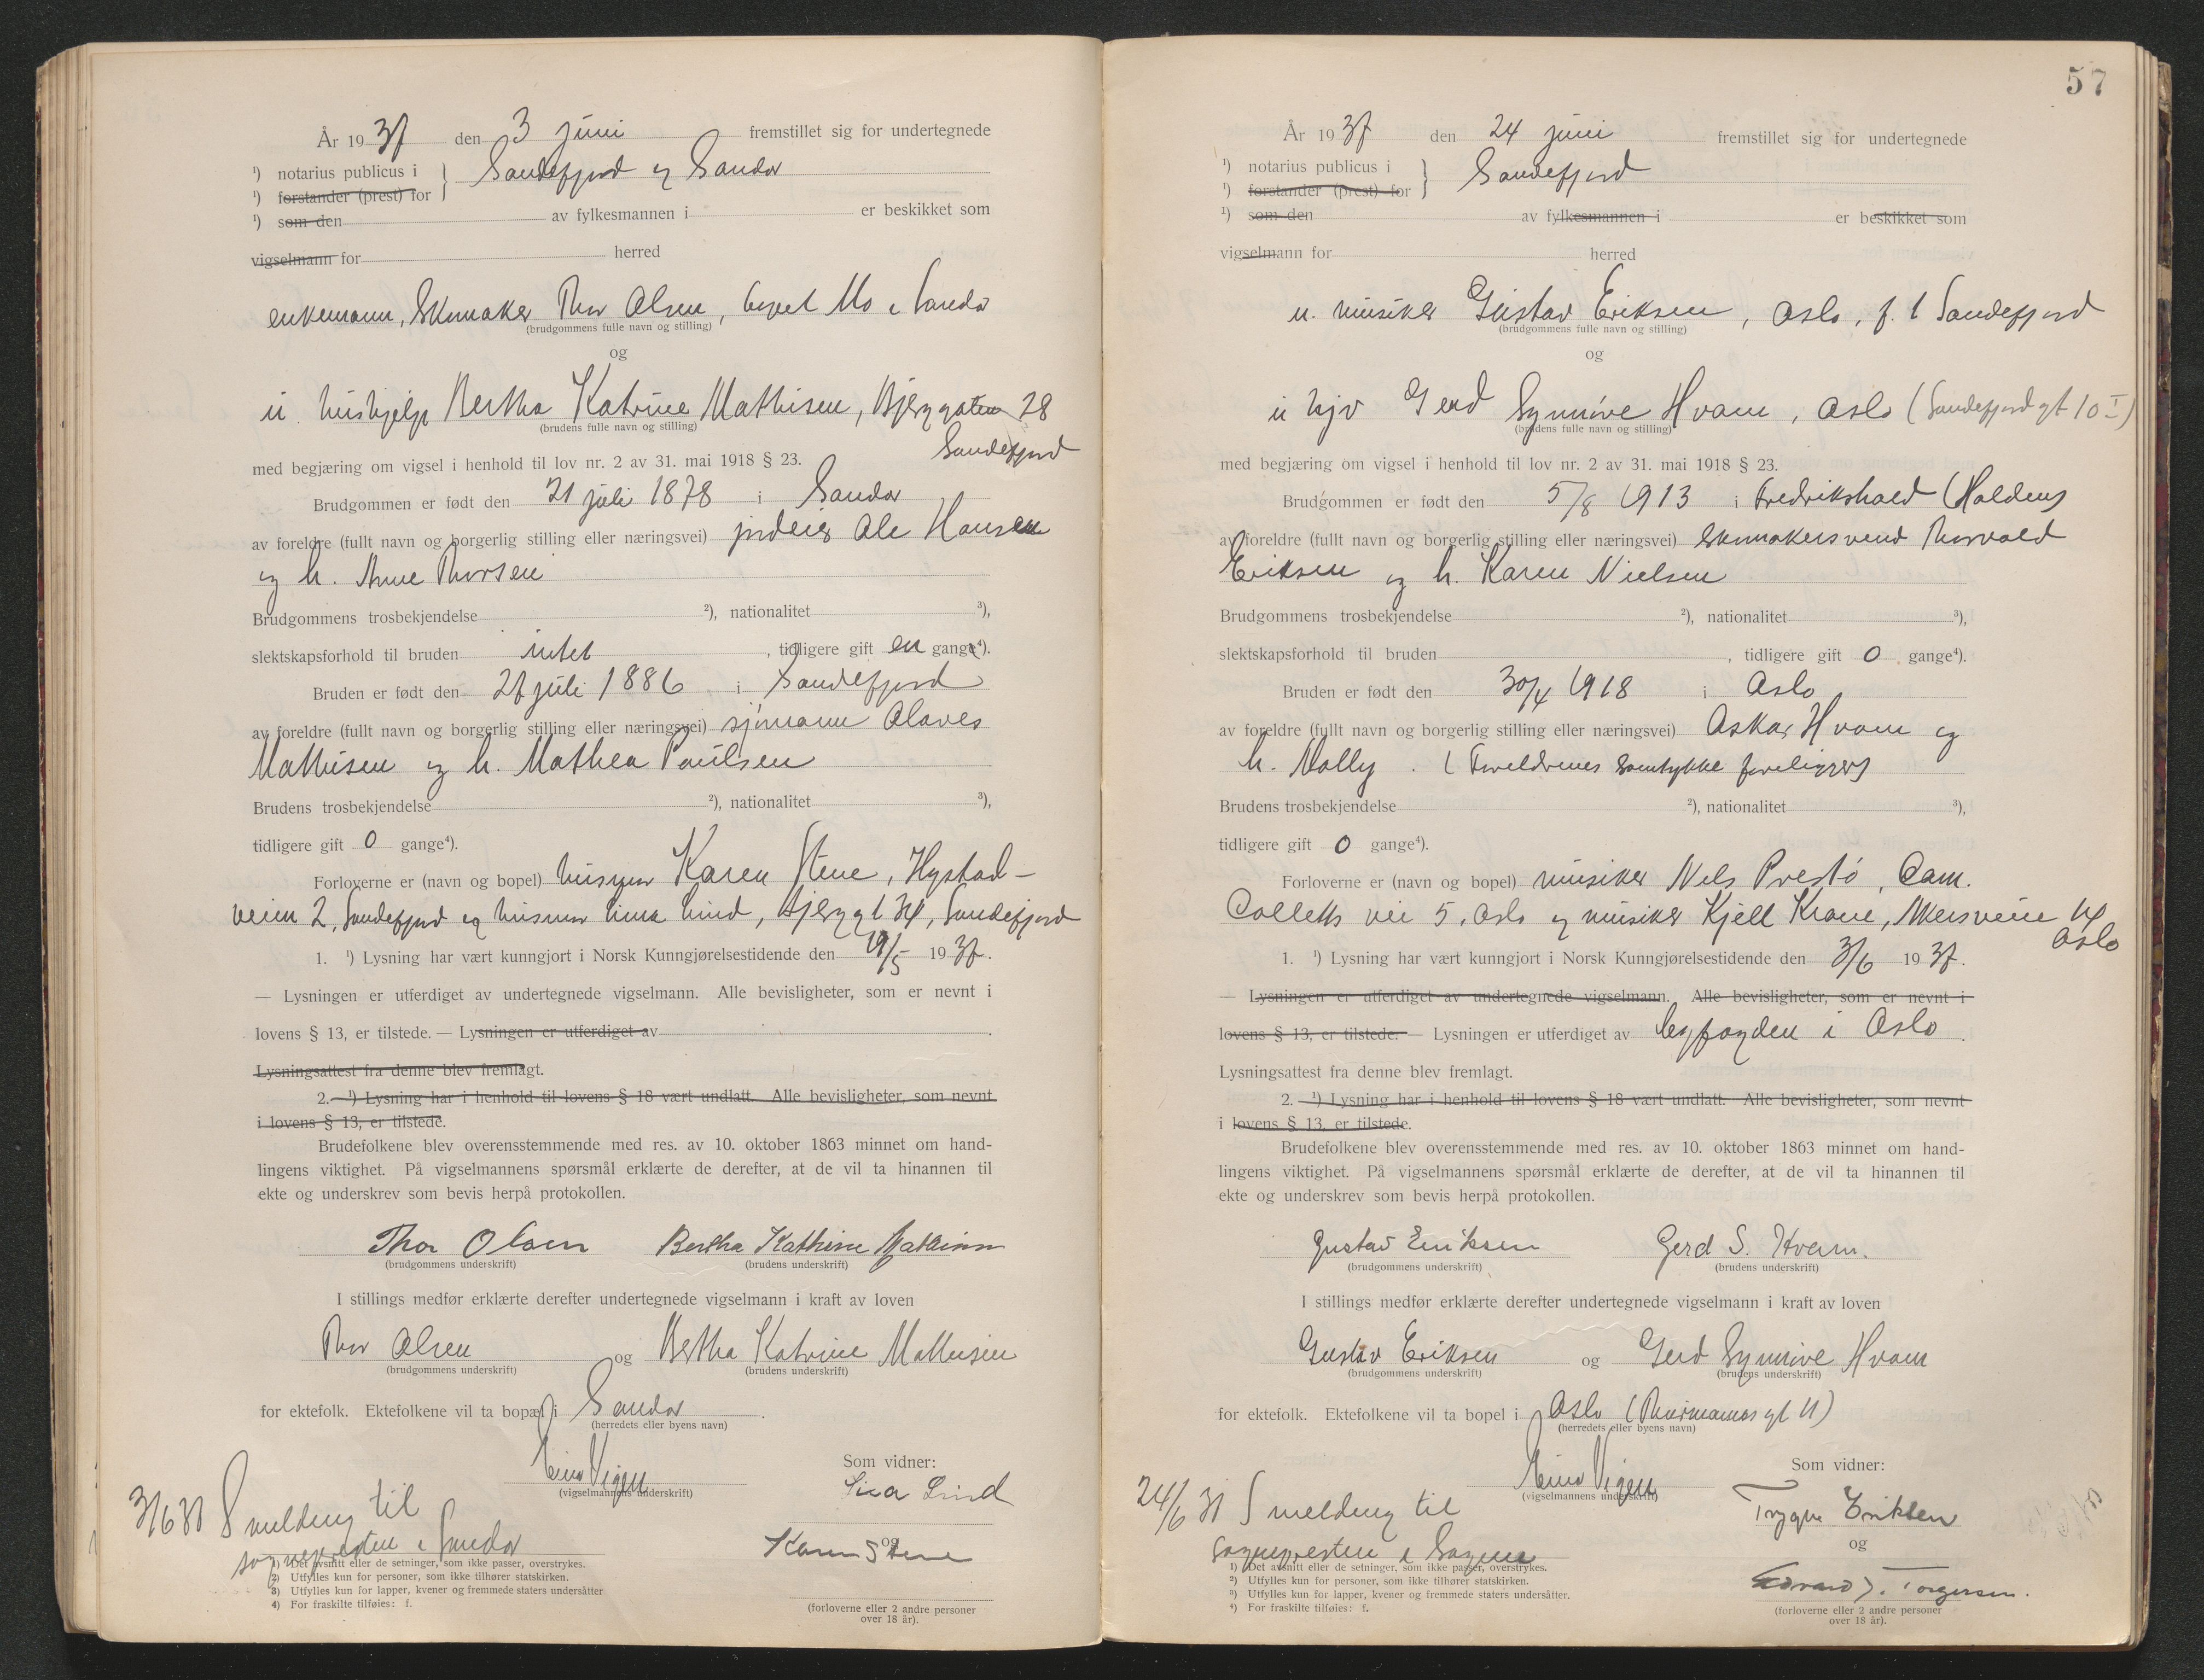 År 1937 den 3 juni fremstillet sig for undertegnede
¹) notarius publicus i } Sandefjord og Sandar
¹) forstander (prest) for
¹) som den av fylkesmannen i er beskikket som
vigselmann for herred
enkemann, Skomaker Thor Olsen, bopel Mo i Sandar
(brudgommens fulle navn og stilling)
og
u. hushjelp Bertha Katrine Mathisen, Bjerggaten 28
(brudens fulle navn og stilling)
Sandefjord
med begjæring om vigsel i henhold til lov nr. 2 av 31. mai 1918 § 23.
Brudgommen er født den 21 juli 1878 i Sandar
av foreldre (fullt navn og borgerlig stilling eller næringsvei) jordeier Ole Hansen
og h. Anne Thorsen
Brudgommens trosbekjendelse ²), nationalitet ³),
slektskapsforhold til bruden intet, tidligere gift en gange⁴).
Bruden er født den 27 juli 1886 i Sandefjord
av foreldre (fullt navn og borgerlig stilling eller næringsvei) sjömann Olaves
Mathisen og h. Mathea Paulsen
Brudens trosbekjendelse ²), nationalitet ³),
tidligere gift 0 gange⁴).
Forloverne er (navn og bopel) husmor Karen Stene, Hystad-
veien 2, Sandefjord og husmor Lina Lind, Bjerggt 34, Sandefjord
1. ¹) Lysning har vært kunngjort i Norsk Kunngjørelsestidende den 19/5 1937.
— Lysningen er utferdiget av undertegnede vigselmann. Alle bevisligheter, som er nevnt i
lovens § 13, er tilstede. — Lysningen er utferdiget av
Lysningsattest fra denne blev fremlagt.
2. ¹) Lysning har i henhold til lovens § 18 vært undlatt. Alle bevisligheter, som nevnt
i lovens § 13, er tilstede.
Brudefolkene blev overensstemmende med res. av 10. oktober 1863 minnet om hand-
lingens viktighet. På vigselmannens spørsmål erklærte de derefter, at de vil ta hinannen til
ekte og underskrev som bevis herpå protokollen.
Thor Olsen Bertha Kathrine Mathisen
(brudgommens underskrift) (brudens underskrift)
I stillings medfør erklærte derefter undertegnede vigselmann i kraft av loven
Thor Olsen og Bertha Katrine Mathisen
(brudgommens underskrift) (brudens underskrift)
for ektefolk. Ektefolkene vil ta bopæl i Sandar.
(herredets eller byens navn)
Som vidner:
Einar Vigen
(vigselmannens underskrift)
Lina Lind
og
Karen Stene
(forloverne eller 2 andre personer
over 18 år).
3/6 37 S melding til
sognepresten i Sandar
1) Det avsnitt eller de setninger, som ikke passer, overstrykes.
2) Utfylles kun for personer, som ikke tilhører statskirken.
3) Utfylles kun for lapper, kvener og fremmede staters undersåtter
4) For fraskilte tilføies: f.
57
År 1937 den 24 juni fremstillet sig for undertegnede
¹) notarius publicus i } Sandefjord
¹) forstander (prest) for
¹) som den av fylkesmannen i er beskikket som
vigselmann for herred
u. musiker Gustav Eriksen, Oslo, f. i Sandefjord
(brudgommens fulle navn og stilling)
og
u hjv Gerd Synnöve Hvam, Oslo (Sandefjordgt 10 I)
(brudens fulle navn og stilling)
med begjæring om vigsel i henhold til lov nr. 2 av 31. mai 1918 § 23.
Brudgommen er født den 5/8 1913 i Fredrikshald (Halden)
av foreldre (fullt navn og borgerlig stilling eller næringsvei) skomakersvend Thorvald
Eriksen og h. Karen Nielsen
Brudgommens trosbekjendelse ²), nationalitet ³),
slektskapsforhold til bruden, tidligere gift 0 gange⁴).
Bruden er født den 30/4 1918 i Oslo
av foreldre (fullt navn og borgerlig stilling eller næringsvei) Oskar Hvam og
h. Molly. (Foreldrenes samtykke foreligger)
Brudens trosbekjendelse ²), nationalitet ³),
tidligere gift 0 gange⁴).
Forloverne er (navn og bopel) musiker Nils Prestö, Cam.
Colletts vei 5, Oslo og musiker Kjell Krane, Akersveien 14
Oslo
1. ¹) Lysning har vært kunngjort i Norsk Kunngjørelsestidende den 3/6 1937.
— Lysningen er utferdiget av undertegnede vigselmann. Alle bevisligheter, som er nevnt i
lovens § 13, er tilstede. — Lysningen er utferdiget av byfogden i Oslo.
Lysningsattest fra denne blev fremlagt.
2. ¹) Lysning har i henhold til lovens § 18 vært undlatt. Alle bevisligheter, som nevnt
i lovens § 13, er tilstede.
Brudefolkene blev overensstemmende med res. av 10. oktober 1863 minnet om hand-
lingens viktighet. På vigselmannens spørsmål erklærte de derefter, at de vil ta hinannen til
ekte og underskrev som bevis herpå protokollen.
Gustav Eriksen Gerd S. Hvam.
(brudgommens underskrift) (brudens underskrift)
I stillings medfør erklærte derefter undertegnede vigselmann i kraft av loven
Gustav Eriksen og Gerd Synnöve Hvam
(brudgommens underskrift) (brudens underskrift)
for ektefolk. Ektefolkene vil ta bopel i Oslo (Thurmannsgt 11)
(herredets eller byens navn)
Som vidner:
Einar Vigen
(vigselmannens underskrift)
Trygve Eriksen
og
Edvard J. Torgersen.
(forloverne eller 2 andre personer
over 18 år).
24/6 37 S melding til
sognepresten i Sagene
1) Det avsnitt eller de setninger, som ikke passer, overstrykes.
²) Utfylles kun for personer, som ikke tilhører statskirken.
³) Utfylles kun for lapper, kvener og fremmede staters undersåtter.
⁴) For fraskilte tilføies: f.